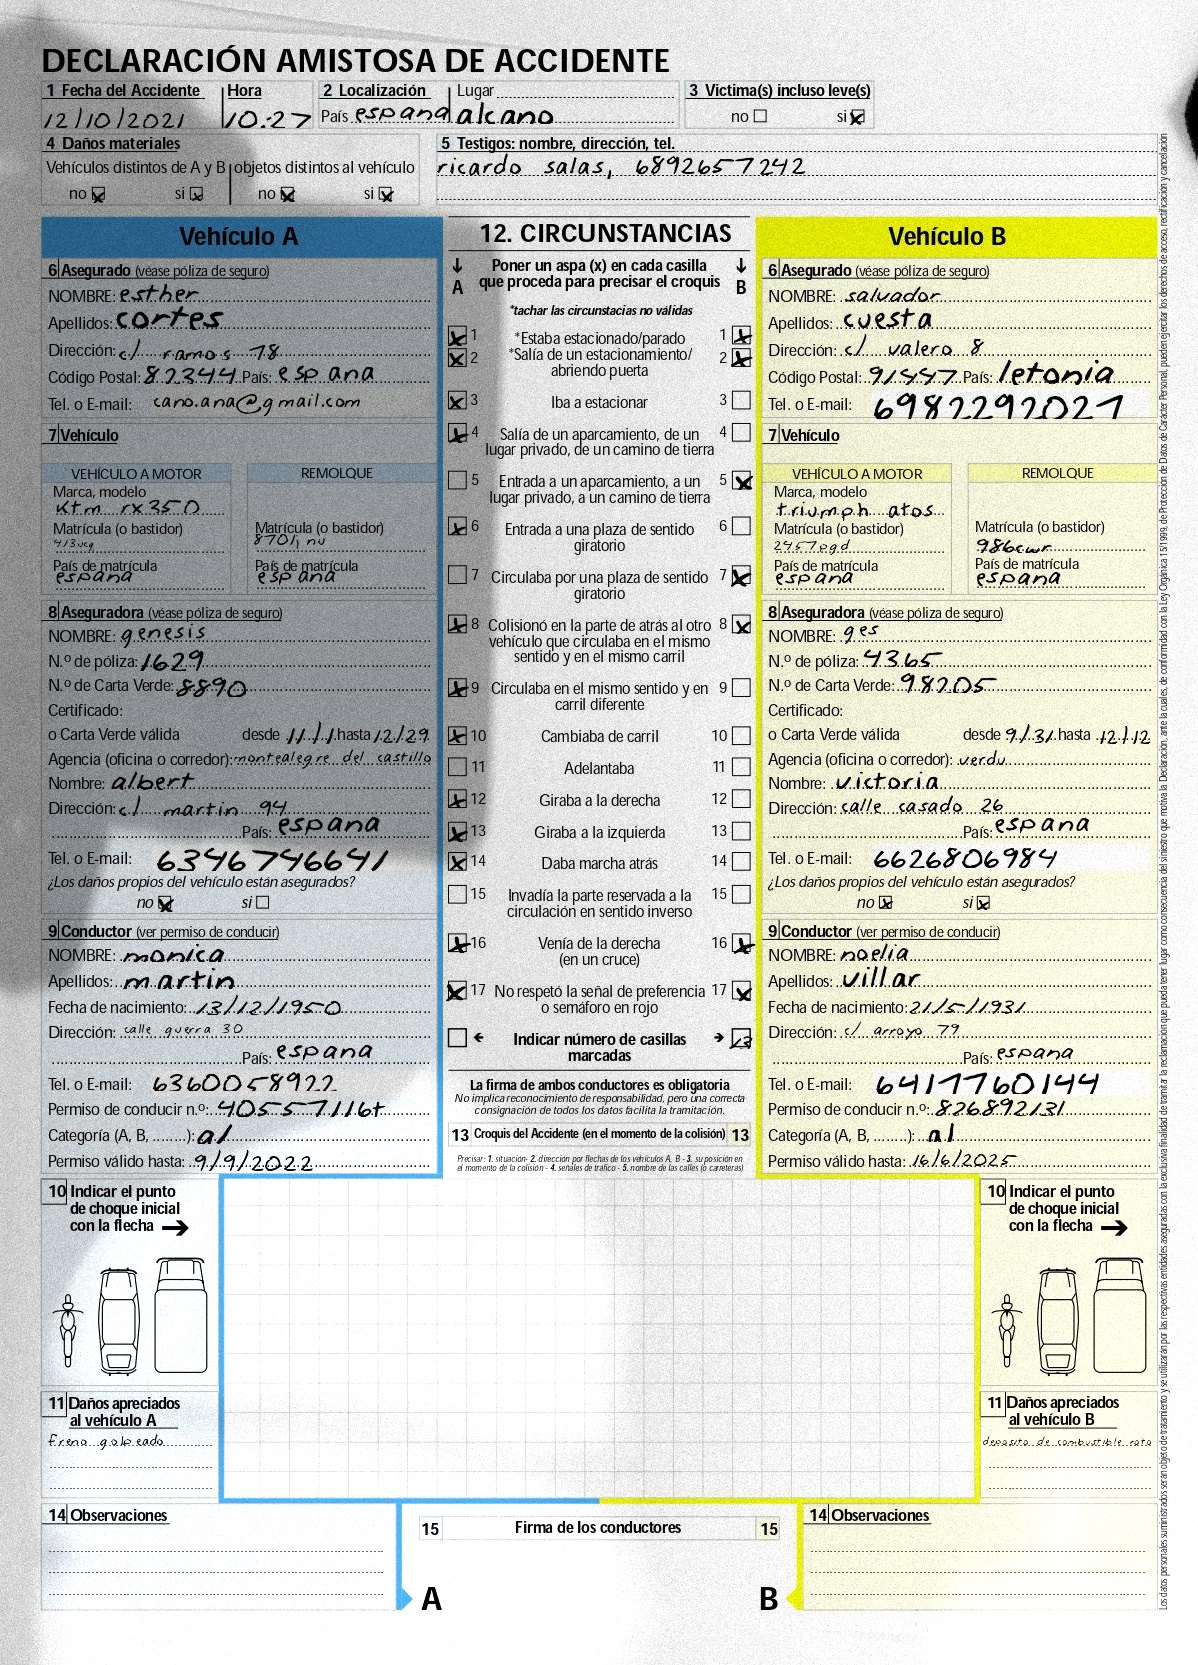 DECLARACIÓN AMISTOSA DE ACCIDENTE
1 Fecha del Accidente Hora 2 Localización Lugar 3 Victima(s) incluso leve(s)
12/10/2021 10:27 País espana alcano no si
4 Daños materiales 5 Testigos: nombre, dirección, tel.
Vehículos distintos de A y B objetos distintos al vehículo ricardo salas, 6892657242
no si no si
Vehículo A
6 Asegurado (véase póliza de seguro)
NOMBRE: esther
Apellidos: cortes
Dirección: c/ ramos 78
Código Postal: 82344 País: espana
Tel. o E-mail: cano.ana@gmail.com
7 Vehículo
VEHÍCULO A MOTOR REMOLQUE
Marca, modelo
ktm rx350
Matrícula (o bastidor) Matrícula (o bastidor)
413ucg 8701, nu
País de matrícula País de matrícula
espana espana
8 Aseguradora (véase póliza de seguro)
NOMBRE: genesis
N.º de póliza: 1629
N.º de Carta Verde: 8890
Certificado:
o Carta Verde válida desde 11/1 hasta 12/29
Agencia (oficina o corredor): montealegre del castillo
Nombre: albert
Dirección: c/ martin 94
País: espana
Tel. o E-mail: 6346746641
¿Los daños propios del vehículo están asegurados?
no si
9 Conductor (ver permiso de conducir)
NOMBRE: monica
Apellidos: martin
Fecha de nacimiento: 13/12/1950
Dirección: calle guerra 30
País: espana
Tel. o E-mail: 6360058922
Permiso de conducir n.º: 40557116t
Categoría (A, B, ........): a1
Permiso válido hasta: 9/9/2022
12. CIRCUNSTANCIAS
A Poner un aspa (x) en cada casilla B
que proceda para precisar el croquis
*tachar las circunstacias no válidas
1 *Estaba estacionado/parado 1
2 *Salía de un estacionamiento/ 2
abriendo puerta
3 Iba a estacionar 3
4 Salía de un aparcamiento, de un 4
lugar privado, de un camino de tierra
5 Entrada a un aparcamiento, a un 5
lugar privado, a un camino de tierra
6 Entrada a una plaza de sentido 6
giratorio
7 Circulaba por una plaza de sentido 7
giratorio
8 Colisionó en la parte de atrás al otro 8
vehículo que circulaba en el mismo
sentido y en el mismo carril
9 Circulaba en el mismo sentido y en 9
carril diferente
10 Cambiaba de carril 10
11 Adelantaba 11
12 Giraba a la derecha 12
13 Giraba a la izquierda 13
14 Daba marcha atrás 14
15 Invadía la parte reservada a la 15
circulación en sentido inverso
16 Venía de la derecha 16
(en un cruce)
17 No respetó la señal de preferencia 17
o semáforo en rojo
Indicar número de casillas 13
marcadas
La firma de ambos conductores es obligatoria
No implica reconocimiento de responsabilidad, pero una correcta
consignación de todos los datos facilita la tramitación.
13 Croquis del Accidente (en el momento de la colisión) 13
Precisar: 1. situación- 2. dirección por flechas de los vehículos A, B - 3. su posición en
el momento de la colisión - 4. señales de tráfico - 5. nombre de las calles (o carreteras)
Vehículo B
6 Asegurado (véase póliza de seguro)
NOMBRE: salvador
Apellidos: cuesta
Dirección: c/ valero 8
Código Postal: 91447 País: letonia
Tel. o E-mail: 6982292021
7 Vehículo
VEHÍCULO A MOTOR REMOLQUE
Marca, modelo
triumph atos
Matrícula (o bastidor) Matrícula (o bastidor)
2457pgd 986cwr
País de matrícula País de matrícula
espana espana
8 Aseguradora (véase póliza de seguro)
NOMBRE: ges
N.º de póliza: 4365
N.º de Carta Verde: 98205
Certificado:
o Carta Verde válida desde 9/31 hasta 12/12
Agencia (oficina o corredor): verdu
Nombre: victoria
Dirección: calle casado 26
País: espana
Tel. o E-mail: 6626806984
¿Los daños propios del vehículo están asegurados?
no si
9 Conductor (ver permiso de conducir)
NOMBRE: noelia
Apellidos: villar
Fecha de nacimiento: 21/5/1931
Dirección: c/ arroyo 79
País: espana
Tel. o E-mail: 6417760144
Permiso de conducir n.º: 826892131
Categoría (A, B, ........): a1
Permiso válido hasta: 16/6/2025
10 Indicar el punto
de choque inicial
con la flecha
11 Daños apreciados
al vehículo A
freno golpeado
10 Indicar el punto
de choque inicial
con la flecha
11 Daños apreciados
al vehículo B
deposito de combustible roto
14 Observaciones
15 Firma de los conductores 15
A B
14 Observaciones
Los datos personales suministrados seran objeto de tratamiento y se utilizarán por las respectivas entidades aseguradas con la exclusiva finalidad de tramitar la reclamación que pueda tener lugar como consecuencia del siniestro que motiva la Declaración, ante la cuales, de conformidad con la Ley Orgánica 15/1999, de Protección de Datos de Carácter Personal, pueden ejercitar los derechos de acceso, rectificación y cancelación